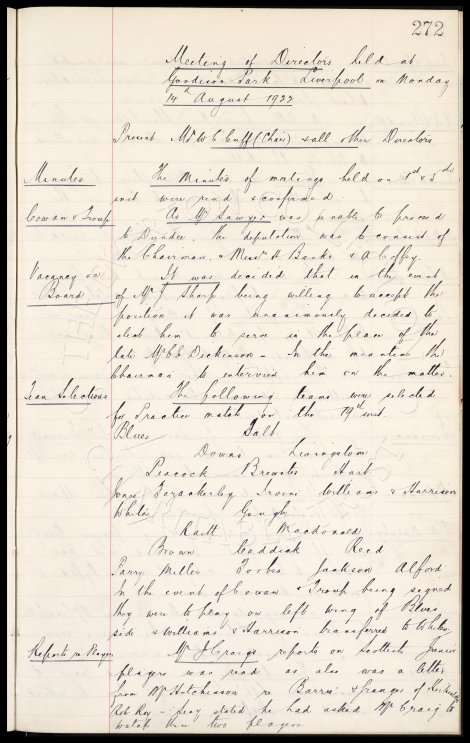 272
Meeting of Directors held at
Goodison Park. Liverpool on Monday
14th August 1922
Present Mr W C Cuff (Chair) & all other Directors
Minutes
The Minutes of meetings held on 1st & 5th
inst were read & confirmed.
Cowan & Troup
As Mr Sawyer was unable to proceed
to Dundee, the deputation was to consist of
the Chairman, & Messrs A Banks & A Coffey.
Vacancy on
Board
It was decided that in the event
of Mr J Sharp being willing to accept the
position it was unanimously decided to
elect him to serve in the place of the
late Mr C E Dickinson - In the meantime the
Chairman to interview him on the matter.
Team Selections
The following teams were selected
for Practice match on the 19th inst.
Blues Salt
Downs Livingstone
Peacock Brewster Hart
Jones Fazackerley Irvine Williams & Harrison
Whites Gough
Raitt Macdonald
Brown Caddick Reid
Parry Miller Forbes Jackson Alford
In the event of Cowan & Troup being signed
they were to play on left wing of Blues
side & Williams & Harrison transferred to Whites
Reports re Players
Mr J Craigs reports on Scottish Junior
players was read as also was a letter
from Mr Hutchinson re Barrie & Granger of
Rob Roy - stated he had asked Mr Craig to
watch these two players.